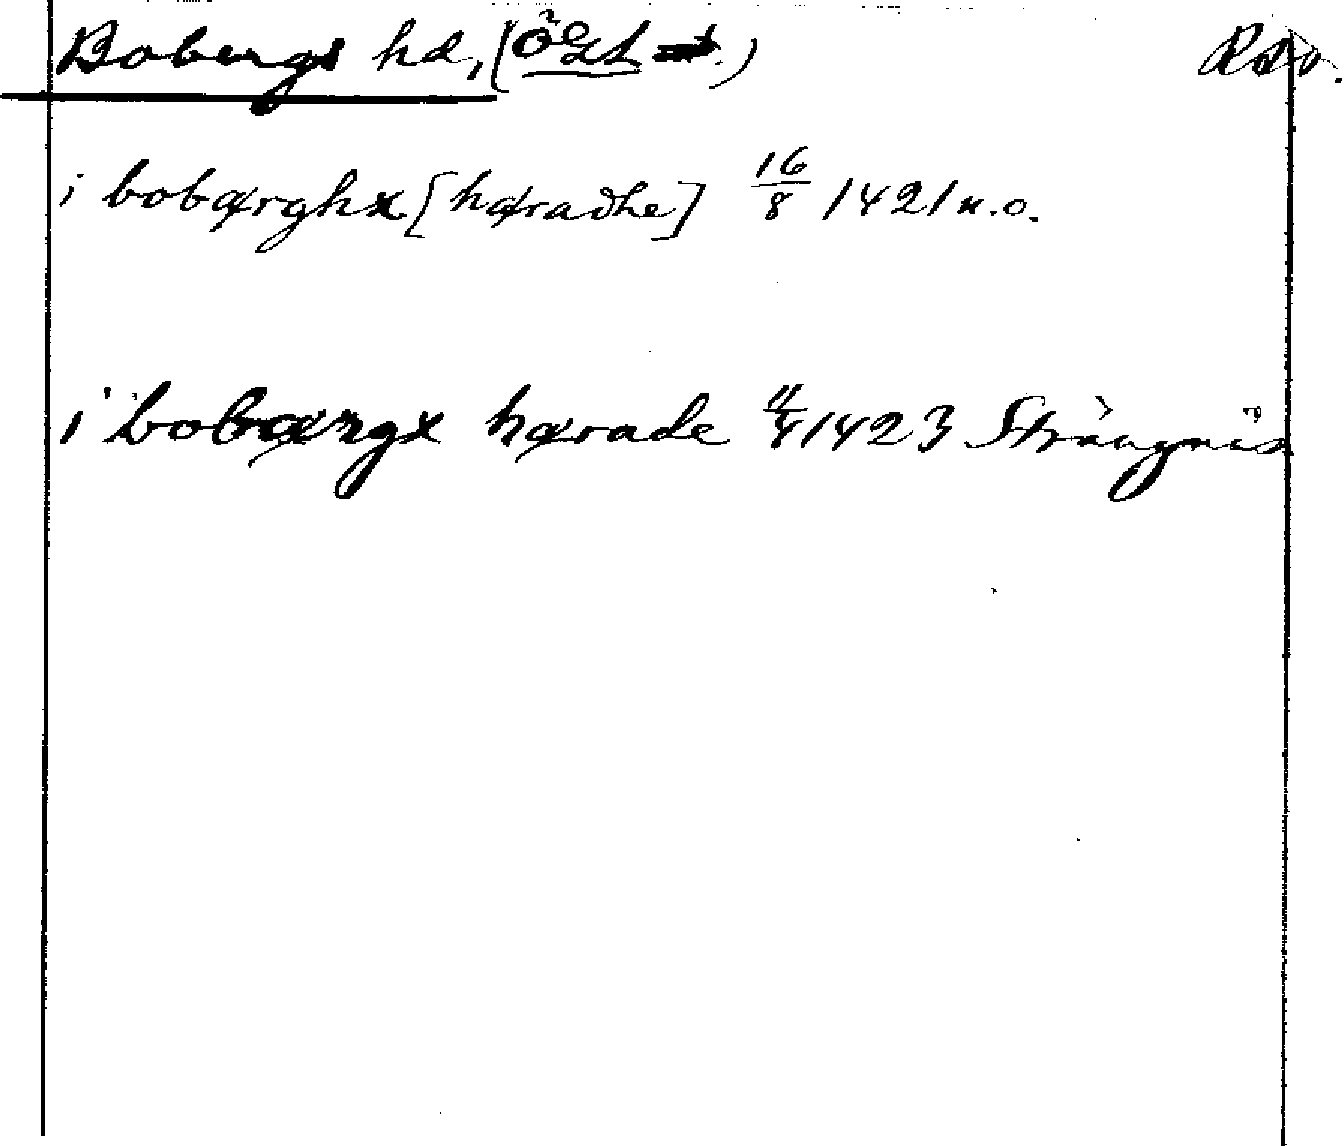 Bobergs hd, (Ögl) Rdo.
i bobærghx [hæradhe] 16/8 1421 u.o.
i bobærgx hærade 4/4 1423 Strängnäs